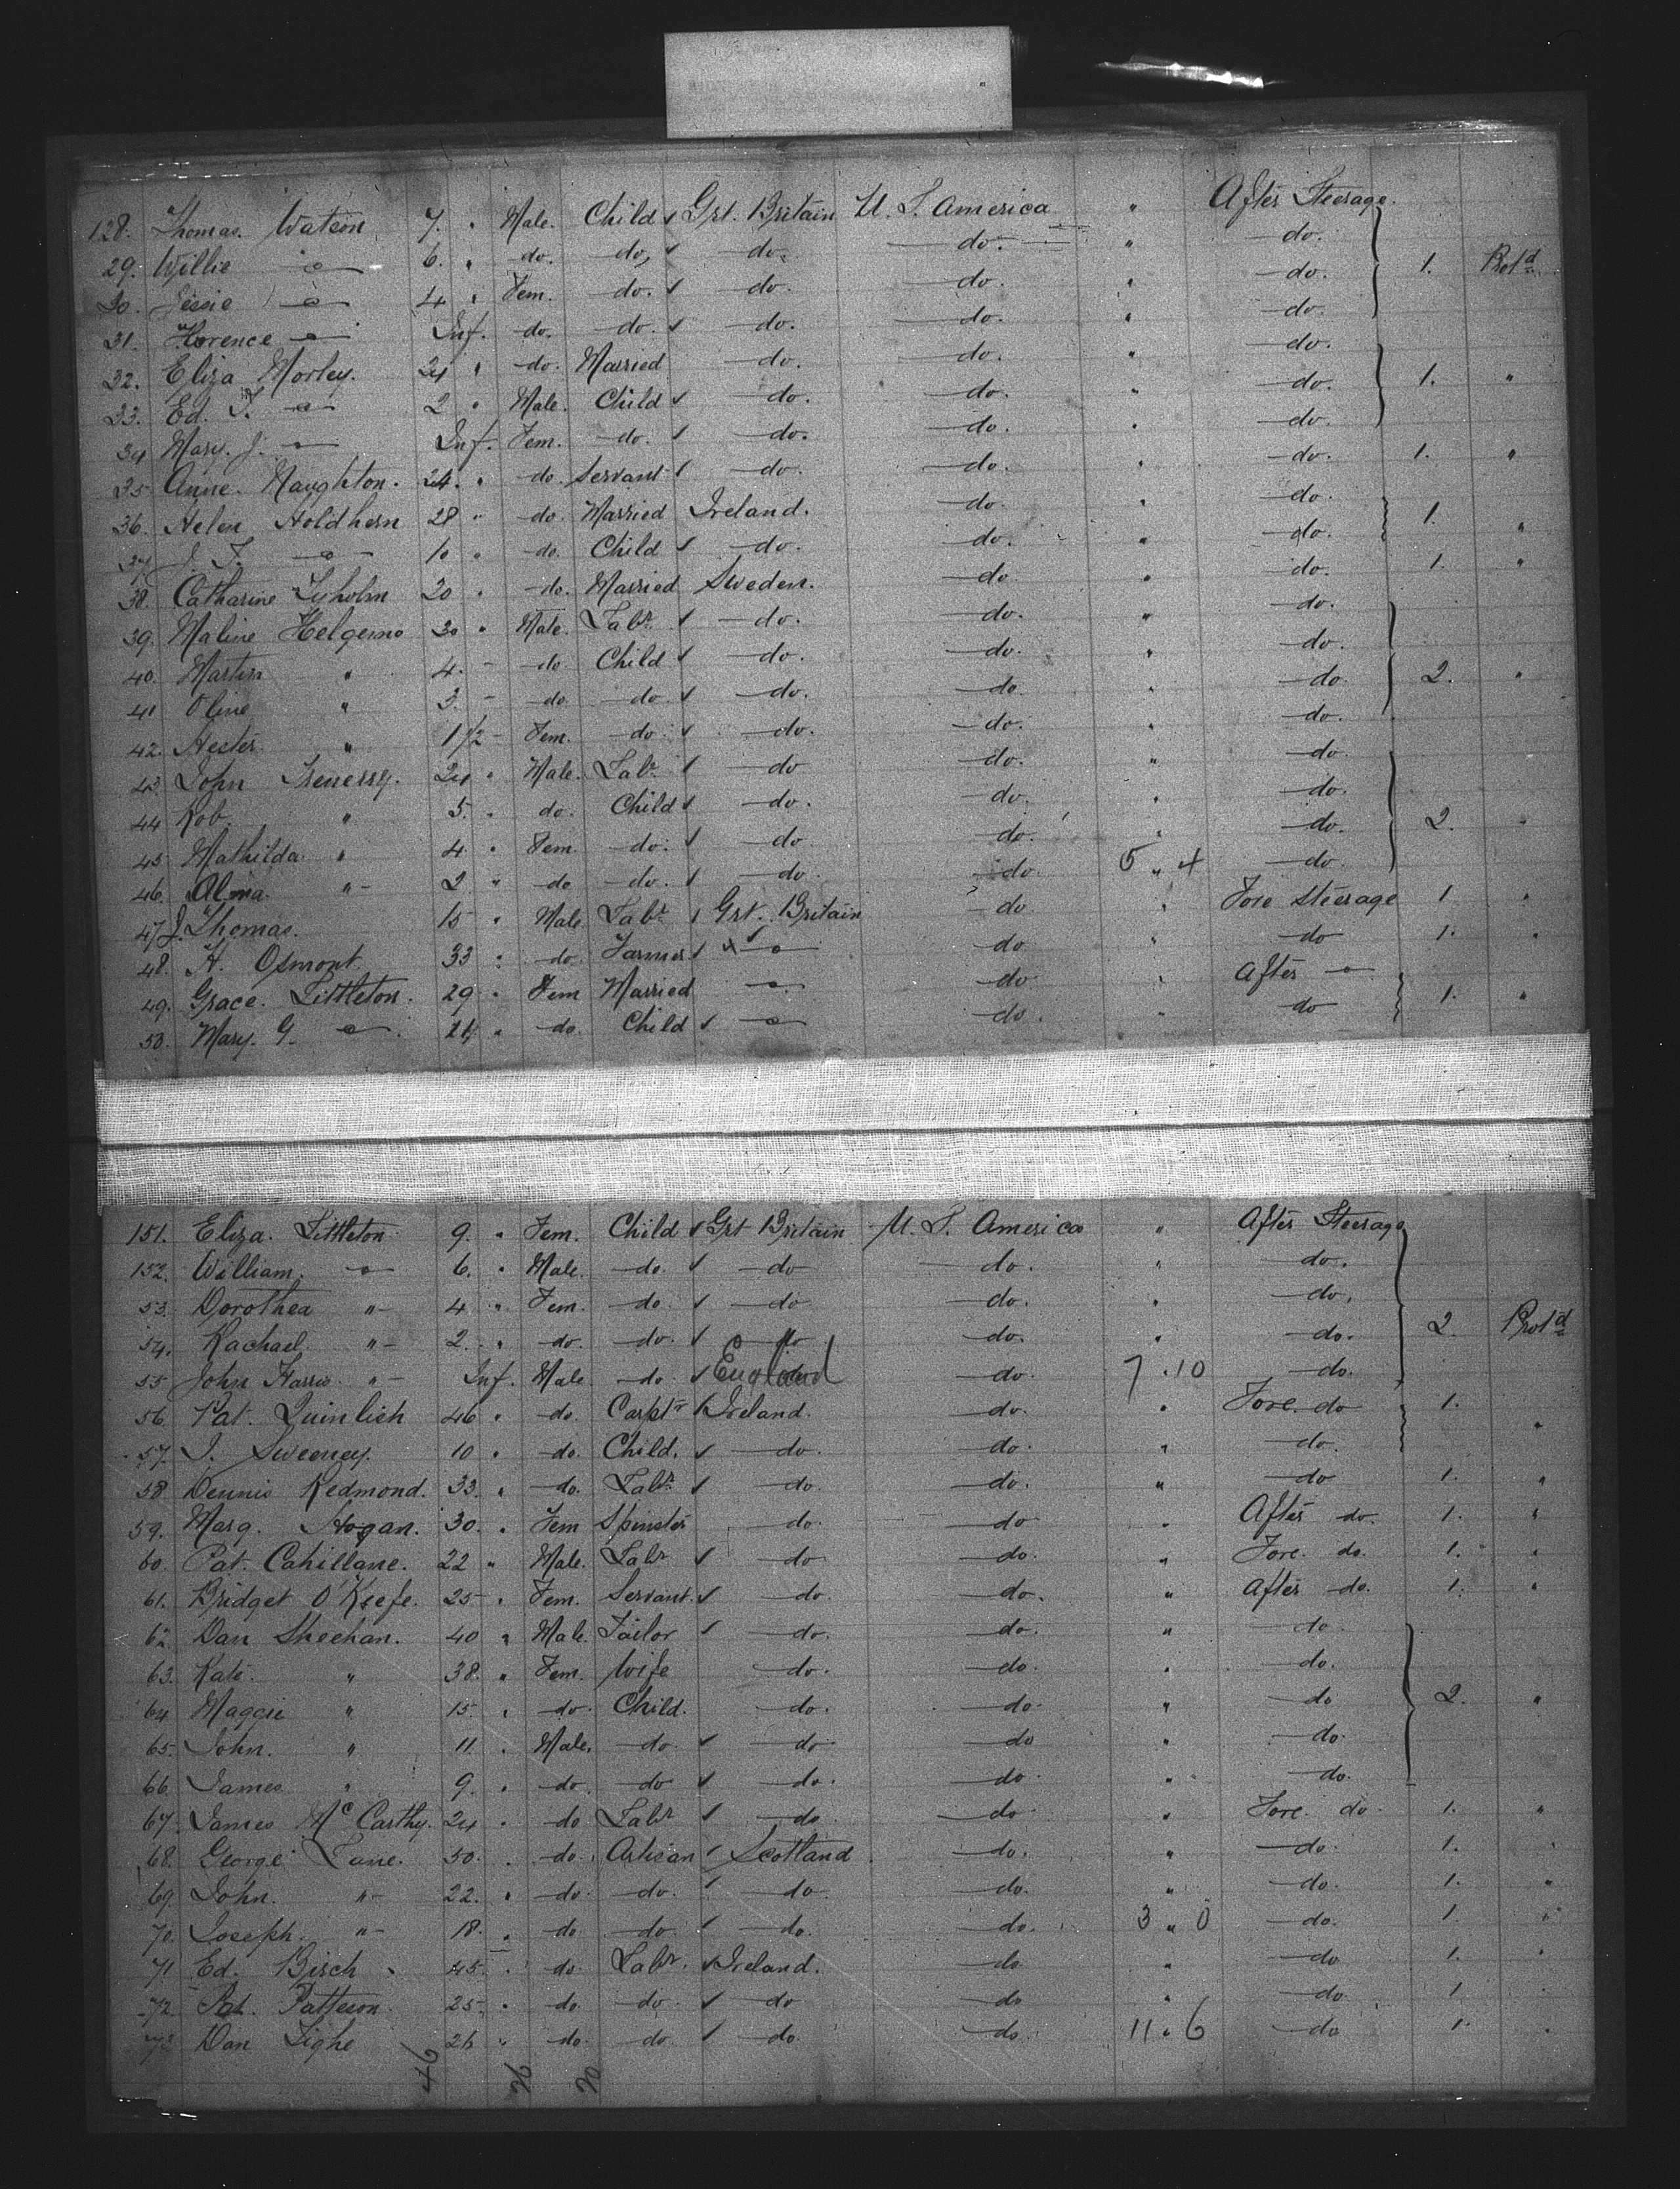 128. Thomas. Watson 7. " Male. Child Grt. Britain U. S. America " After Steerage.
29. Willie —"— 6. " do. do. do. do. " do. 1. Prot'd
30. Jessie —"— 4 " Fem. do. do. do. " do.
31. Florence —"— Inf. do. do. do. do. " do.
32. Eliza Morley. 24 " do. Married do. do. " do.
33. Ed. T. —"— 2 " Male. Child do. do. " do. 1. "
34 Mary. J. —"— Inf. Fem. do. do. do. " do.
35 Anne. Naughton. 24. " do. Servant do. do. " do. 1. "
36. Helen Holdhern 28 " do. Married Ireland. do. " do. 1. "
37 J. F. —"— 10 " do. Child do. do. " do.
38. Catharine Lyholm 20 " do. Married Sweden. do " do. 1. "
39. Maline Helgemo 30 " Male. Labr. do. do. " do.
40. Martin " 4. - do Child do. do. " do.
41 Oline " 3. - do do do. do " do 2. "
42. Hester " 1 1/2 - Fem. do. do. do. " do.
43. John 24 " Male. Labr. do do. " do
44 Rob. " 5. " do. Child do. do. " do.
45. Mathilda " 4. " Fem. do. do do. " do. 2. "
46. Alma. "- 2. " do do. do do 5 " 4 do.
47 J. Thomas. 15 " Male Labr. Grt. Britain do " Fore Steerage 1 "
48. H. Osmont 33 " do. Farmer —"— do " do 1. "
49. Grace. Littleton. 29 " Fem Married —"— do " After —"— 1. "
50. Mary. G. —"— " do. Child —"— do. " do
151. Eliza. Littleton 9. " Fem. Child Grt Britain U. S. America " After Steerage
152. William. —"— 6. " Male. do. do do. " do.
53. Dorothea "- 4 " Fem. do. do do. " do.
54. Rachael. "- 2. " do. do. do do. " do. 2. Prot'd
55 John Harris. "- Inf. Male. do. England do. 7 . 10 do.
56. Pat. Quinlich 46 " do. Carptr Ireland. do. " Fore. do 1.
57. J. Sweeney. 10 " do. Child. do. do. " do. "
58 Dennis Redmond. 33. " do. Labr. do. do. " do 1. "
59. Marg. Hogan. 30. " Fem Spinster do. do " After do. 1. "
60. Pat. Cahillane. 22 " Male. Labr. do do. " Fore. do. 1. "
61. Bridget O'Keefe. 25 " Fem. Servant. do. do. " After do. 1. "
62. Dan Sheehan. 40 " Male. Tailor do. do. " do
63. Kate. " 38. " Fem. Wife do. do. " do.
64 Maggie " 15. " do. Child. do. do. " do 2. "
65. John. " 11. " Male. do. do. do " do.
66. James " 9. " do. do do. do " do.
67. James McCarthy. 24 " do Labr. do. do " Fore. do. 1. "
68. George Lane. 50. " do. Artisan Scotland do. " do. 1. "
69. John. "- 22. " do. do. do. do. " do. 1. "
70. Joseph. "- 18. " do do do. do. 3 " 0 do. 1. "
71 Ed. Birch 45. " do. Labr. Ireland. do " do 1. "
72. Pat. Patteson. 25 " do. do. do do " do. 1 "
73 Dan Tighe 26 " do. do do. do. 11 " 6 do 1. "
46